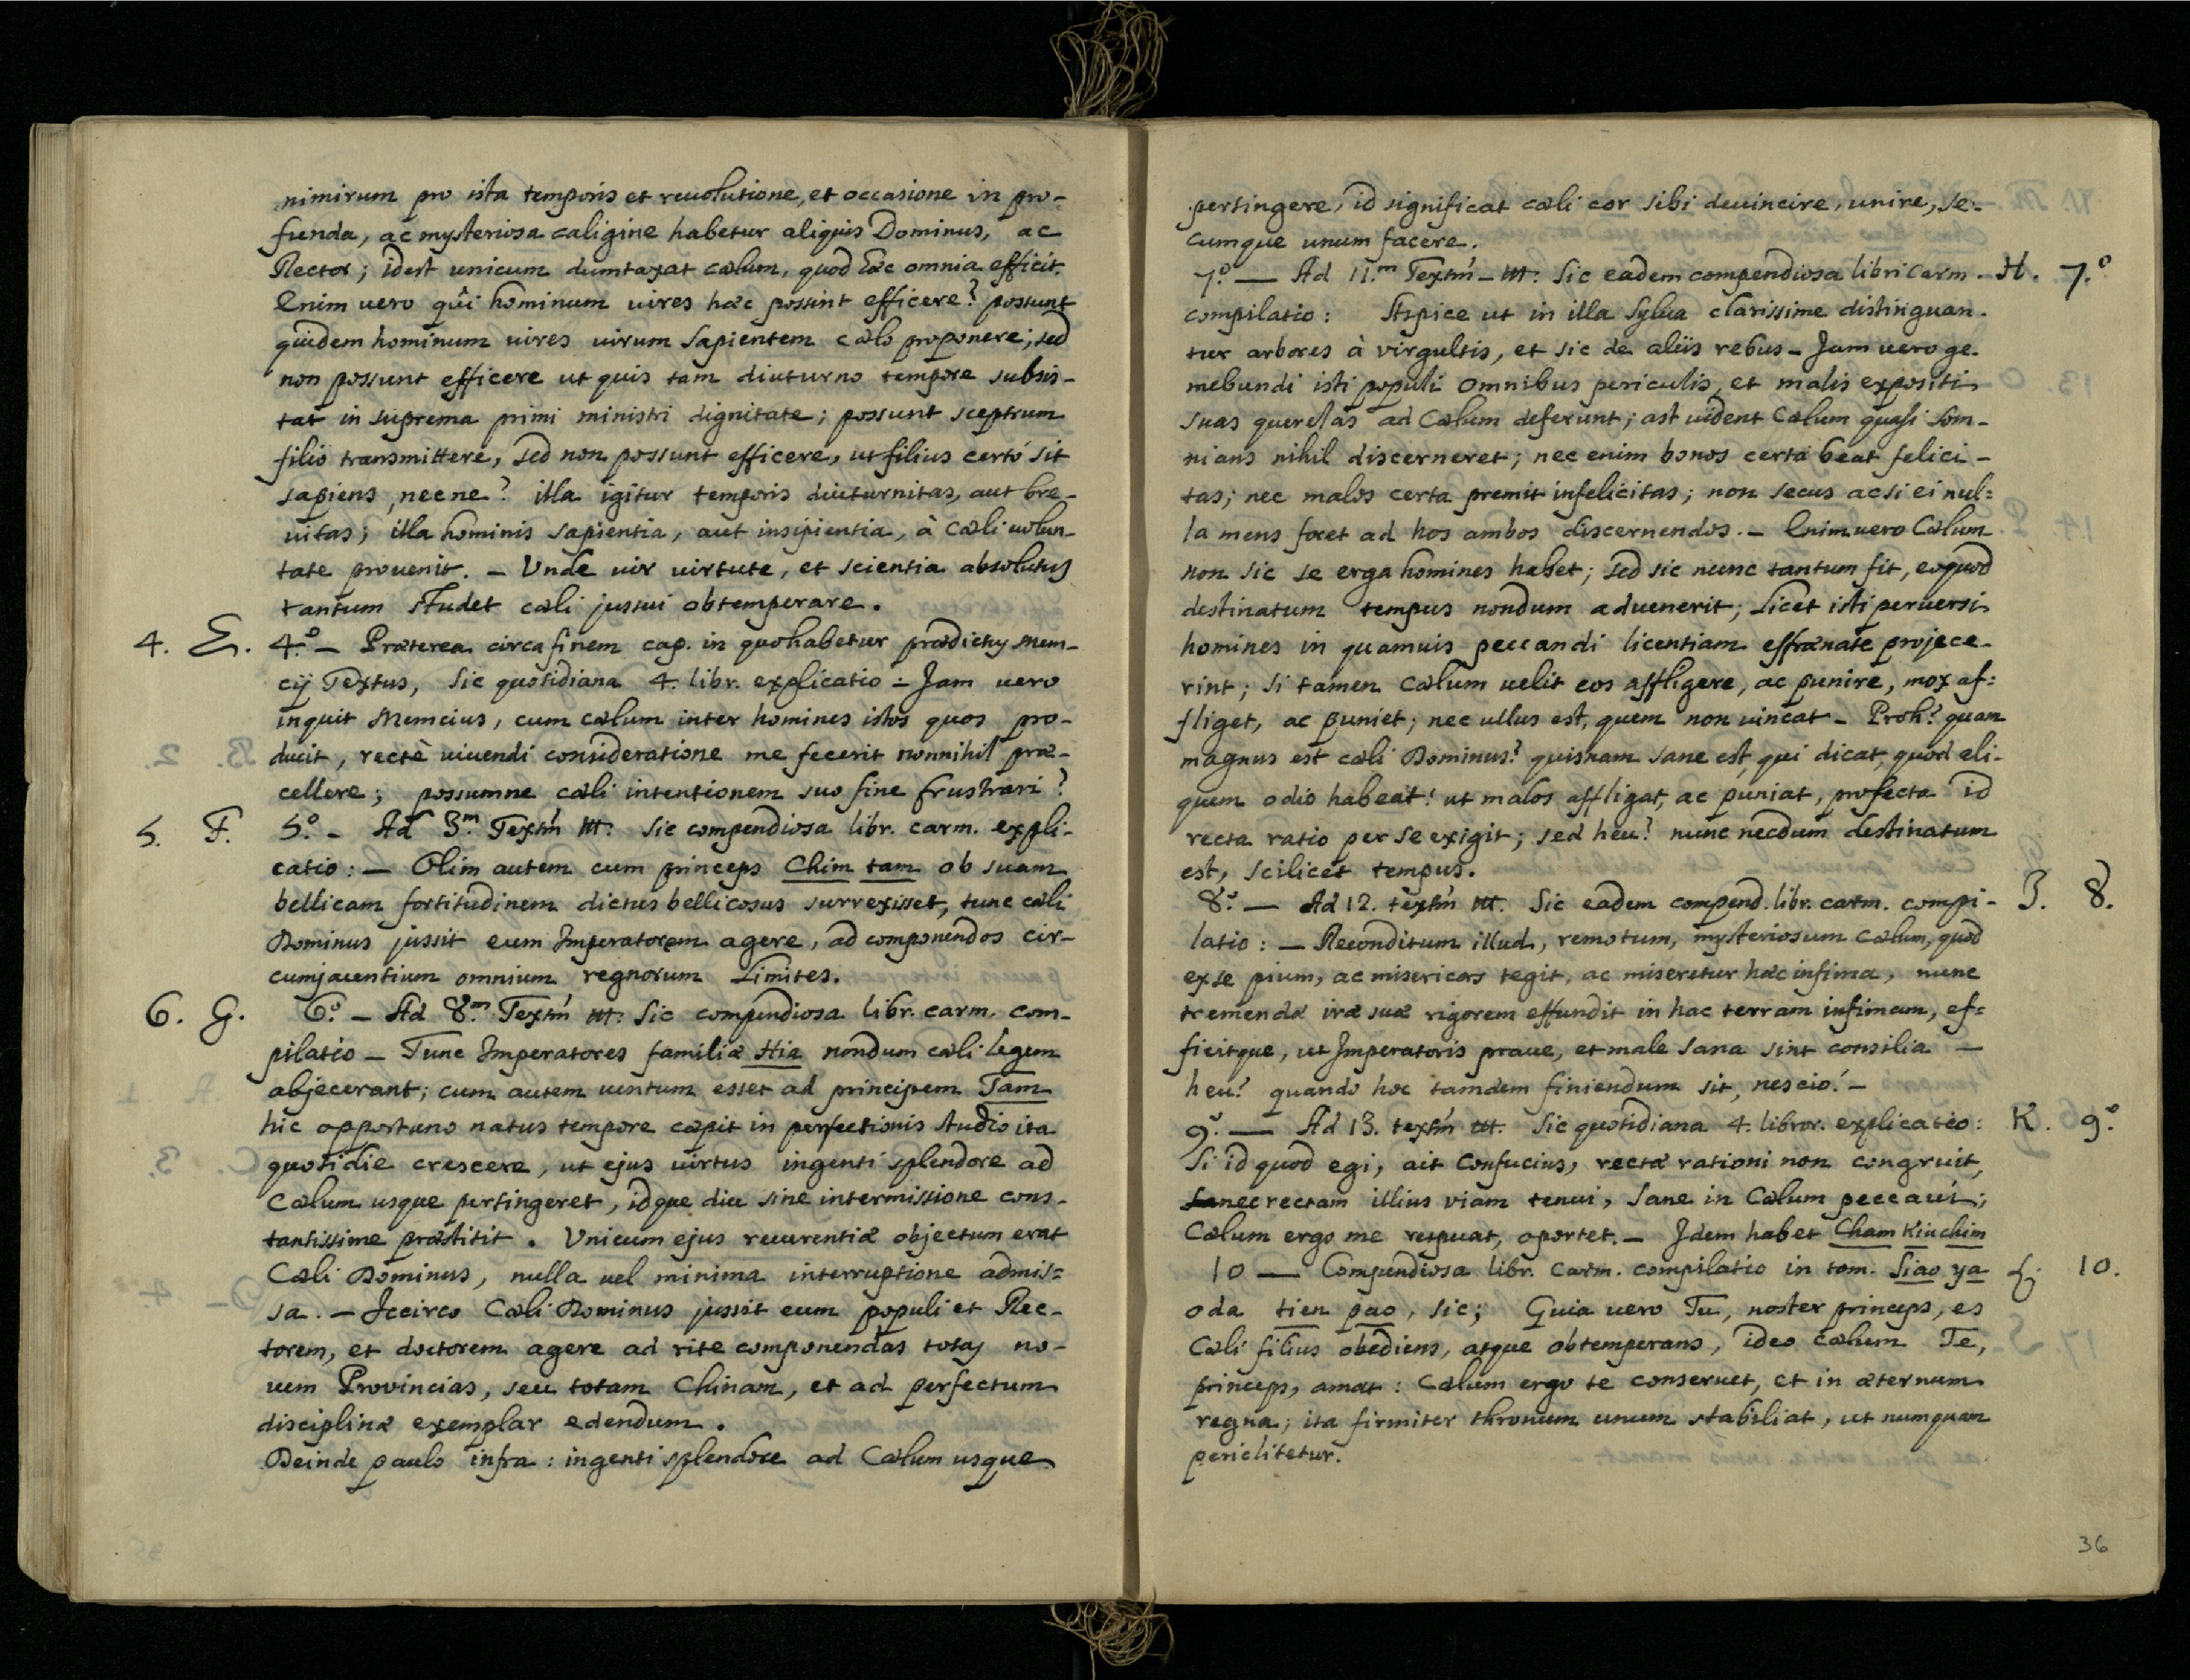 nimirum pro ista temporis et reuolutione, et occasione in pro-
funda, ac mysteriosa caligine habetur aliquis Dominus, ac
Rector; idest unicum dumtaxat cœlum, quod hæc omnia efficit.
Enim uero qûi hominum uires hæc possint efficere? possunt
quidem hominum uires uirum sapientem cœlo proponere; sed
non possunt efficere ut quis tam diuturno tempore subsis-
tat in suprema primi ministri dignitate; possunt sceptrum
filio transmittere, sed non possunt efficere, ut filius certó sit
sapiens, necne? illa igitur temporis diuturnitas, aut bre-
uitas; illa hominis sapientia, aut insipientia, à Cœli uolun-
tate prouenit. - Vnde uir uirtute, et scientia absolutus
tantum studet cœli jussui obtemperare.
4. E. 4.º - Præterea circa finem cap. in quo habetur prædictus mem-
cij Textus, sic quotidiana 4. libr. explicatio - Jam uero
inquit Memcius, cum cœlum inter homines istos quos pro-
ducit, rectè uiuendi consideratione me fecerit nonnihil præ-
cellere; possumne cœli intentionem suo fine frustrari?
5. F. 5.º - Ad 3.m Textḿ m: sic compendiosa libr. carm. expli-
catio: - Olim autem cum princeps Chim tam ob suam
bellicam fortitudinem dictus bellicosus surrexisset, tunc cœli
Dominus jussit eum Imperatorem agere, ad componendos cir-
cumjacentium omnium regnorum limites.
6. G. 6.º - Ad 8.m Textḿ m: sic compendiosa libr. carm. com-
pilatio - Tunc Imperatores familiæ Hia nondum cœli legem
abjecerant; cum autem uentum esset ad principem Tam
hic opportuno natus tempore cœpit in perfectionis studio ita
quotidie crescere, ut ejus uirtus ingenti splendore ad
Cœlum usque pertingeret, idque diu sine intermissione cons-
tantissime præstitit. Vnicum ejus reuerentiæ objectum erat
Cœli Dominus, nulla uel minima interruptione admis=
sa. - Iccirco Cœli Dominus jussit eum populi et Rec-
torem, et doctorem agere ad rite componendas totas no-
uem Provincias, seu totam Chinam, et ad perfectum
disciplinæ exemplar edendum.
Deinde paulo infra: ingenti splendore ad Cœlum usque
pertingere, id significat cœli cor sibi deuincire, unire, se-
cumque unum facere.
7.º - Ad 11.m Textḿ - m: sic eadem compendiosa libri carm. - H. 7.º
compilatio: Aspice ut in illa sylua clarissime distinguan-
tur arbores à virgultis, et sic de aliis rebus - Jam uero ge-
mebundi isti populi omnibus periculis, et malis expositi
suas querelas ad Cœlum deferunt; ast uident Cœlum quasi som-
nians nihil discerneret; nec enim bonos certa beat felici-
tas; nec malos certa premit infelicitas; non secus acsi ei nul=
la mens foret ad hos ambos discernendos. - Enimuero Cœlum
non sic se erga homines habet; sed sic nunc tantum fit, eo quod
destinatum tempus nondum aduenerit; licet isti peruersi
homines in quamuis peccandi licentiam effrænate projece-
rint; si tamen cœlum uelit eos affligere, ac punire, mox af=
fliget, ac puniet; nec ullus est, quem non uincat - Proh! quam
magnus est cœli Dominus! quisnam sane est, qui dicat, quod ali-
quem odio habeat! ut malos affligat, ac puniat, profecto id
recta ratio per se exigit; sed heu! nunc necdum destinatum
est, scilicet tempus.
8.º - Ad 12. textḿ m. sic eadem compend. libr. carm. compi- J. 8.
latio: - Reconditum illud, remotum, mysteriosum cœlum, quod
ex se pium, ac misericors tegit, ac miseretur hæc infima, nunc
tremendæ iræ suæ rigorem effundit in hac terram infimam, ef=
ficitque, ut Imperatoris praue, et male sana sint consilia -
heu! quando hoc tamdem finiendum sit, nescio! -
9.º - Ad 13. textḿ m. sic quotidiana 4. libror. explicatio: K. 9.º
Si id quod egi, ait Confucius, rectæ rationi non congruit,
nec rectam illius viam tenui, sane in Cœlum peccaui;
Cœlum ergo me respuat, oportet. - Idem habet Cham Kiu chim
10 - Compendiosa libr. carm. compilatio in tom. Siao ya L. 10.
oda tien pao, sic; Quia uero Tu, noster princeps, es
Cœli filius obediens, atque obtemperans, ideo cœlum Te,
princeps, amat: Cœlum ergo te conseruet, et in æternum
regna; ita firmiter thronum unum stabiliat, ut numquam
periclitetur.
36